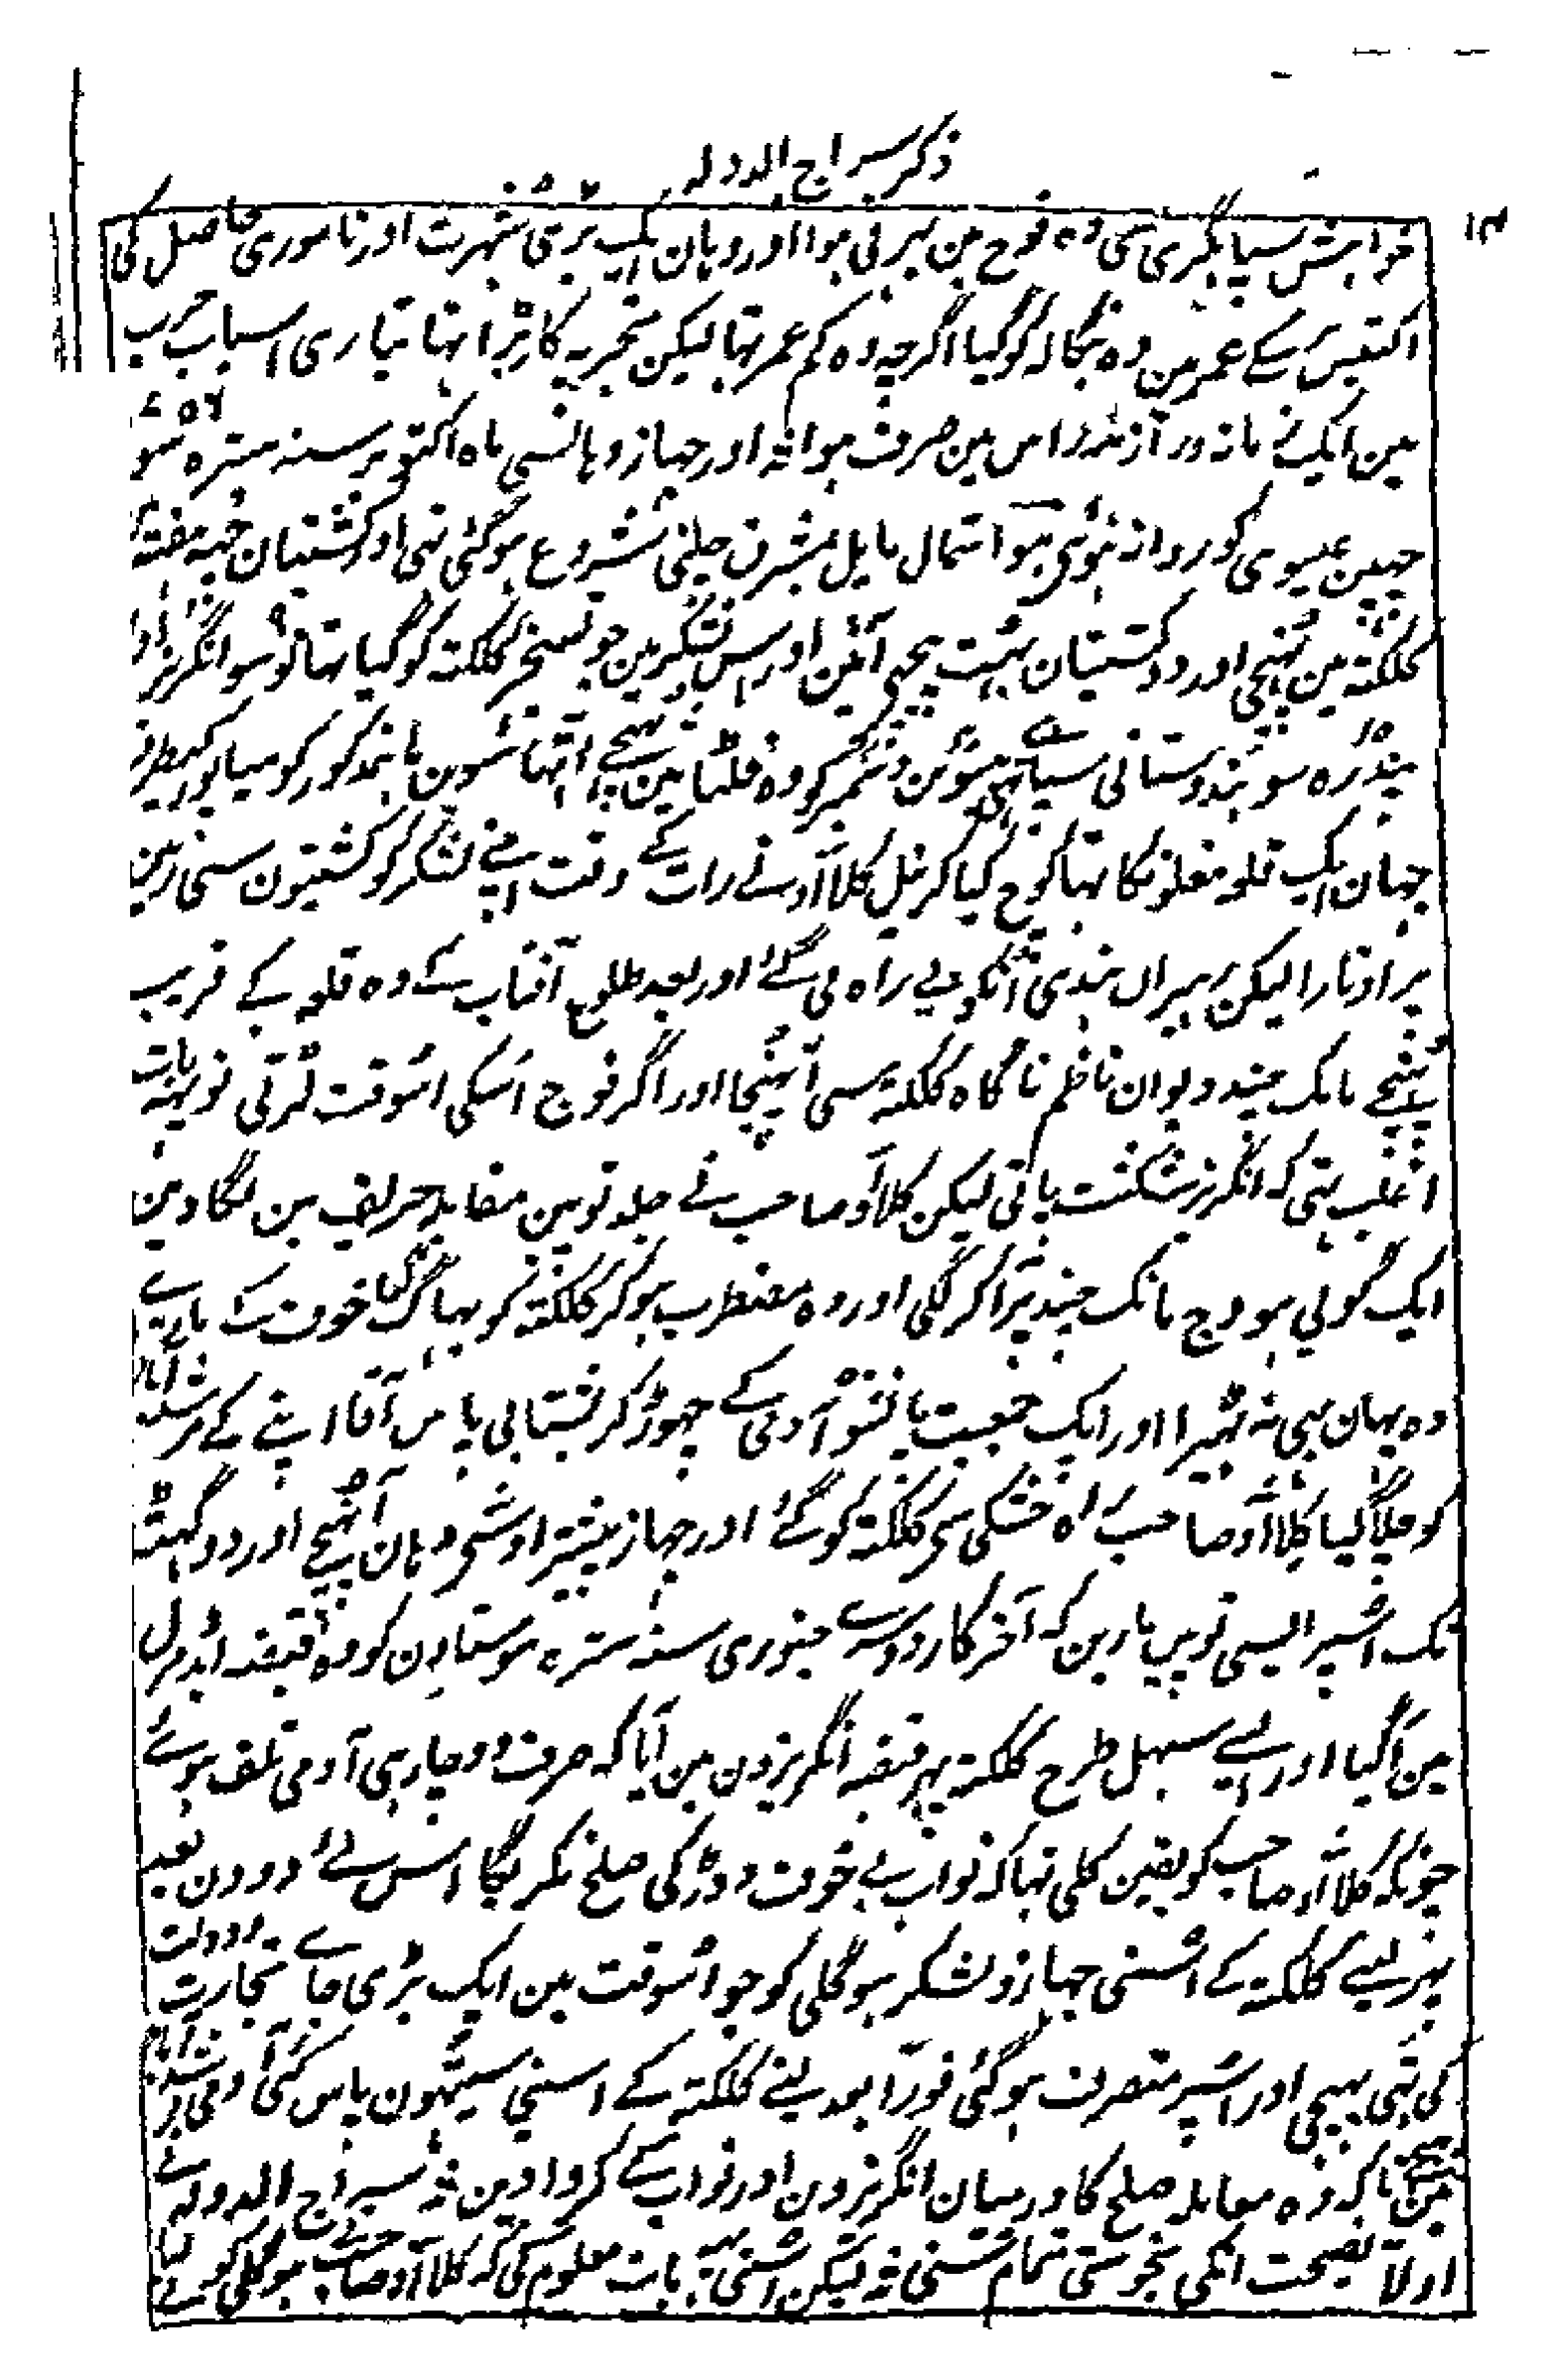 ذکر سراج الدولہ
۱۴
خواہش سپاہگری سی وہ فوج مین بہرتی ہوا اور وہان ایک بڑی شہرت اور ناموری حاصل کی
اکتیس برس کے عمر مین وہ بنگالہ کو گیا اگرچہ وہ کم عمر تہا لیکن تجربہ کار بڑا تہا تیاری اسباب حرب
مین ایک زمانہ دراز مدراس مین صرف ہوا اور جہاز وہانسی ماہ اکتوبر سنہ سترہ سو ۱۷۵۶ء
چہپن عیسوی کو روانہ ہوئی ہوا شمال مایل بمشرق چلنی شروع ہو گئی تہی اور کشتیان چہہ ہفتہ
کلکتہ مین پہنچی اور دو کشتیان بہت پیچہی آئین اور اس لشکر مین جو تسخیر کلکتہ کو گیا تہا نو سو انگریز اور
پندرہ سو ہندوستانی سپاہی تہے دسمبر کو وہ فلٹا مین پہنچے اٹہائیسوین ماہ مذکور کو میاپور کیطرف
جہان ایک قلعہ مغلونکا تہا کوچ کیا کرنیل کلااؤ نے رات کے وقت اپنے لشکر کو کشتیون سی زمین
پر اوتارا لیکن رہبران ہندی انکو بے راہ لی گئے اور بعد طلوع آفتاب کے وہ قلعہ کے قریب
پہنچے مانک چند دیوان ناظم ناگاہ کلکتہ سی آپہنچا اور اگر فوج اسکی اسوقت لڑتی تو یہہ بات
اغلب تہی کہ انگریز شکست پاتی لیکن کلااؤ صاحب نے جلد توپین مقابلہ حریف مین لگا دین
ایک گولی ہودج مانک چند پر آکر لگی اور وہ مضطرب ہو کر کلکتہ کو بہاگ گیا خوف کے مارے
وہ یہان بہی نہ ٹہیرا اور ایک جمعیت پانسو آدمی کے چہوڑ کر بشتابی پاس آقا اپنے کے مرشداباد
کو چلا گیا کلااؤ صاحب راہ خشکی سی کلکتہ کو گئے اور جہاز پیشتر اوسی وہان آپہنچے اور دو گہنٹہ
تک اسپر ایسی توپین مارین کہ آخر کار دوسرے جنوری سنہ سترہ سو ستاون کو وہ قبضہ اڈمرل
مین آگیا اور ایسے سہل طرح کلکتہ پہر قبضہ انگریزون مین آیا کہ صرف دو چار ہی آدمی تلف ہوئے
چونکہ کلااؤ صاحب کو یقین کلی تہا کہ نواب بے خوف و ڈر کی صلح نکریگا اس لئے دو دن بعد
پہر لینے کلکتہ کے اسنی جہاز و لشکر ہوگلی کو جو اسوقت مین ایک بڑی جائے تجارت و دولت
کی تہی بہیجی اور اسپر متصرف ہو گئی فورا بعد لینے کلکتہ کے اسنی سیٹہون پاس کئی آدمی مرشداباد
مین بہیجے تاکہ وہ معاملہ صلح کا درمیان انگریزون اور نواب کے کروا دین سراج الدولہ نے
اولاً نصیحت انکی بخوشی تمام سنی لیکن اسنی یہہ بات معلوم کی کہ کلااؤ صاحب نے ہوگلی کو لے لیا